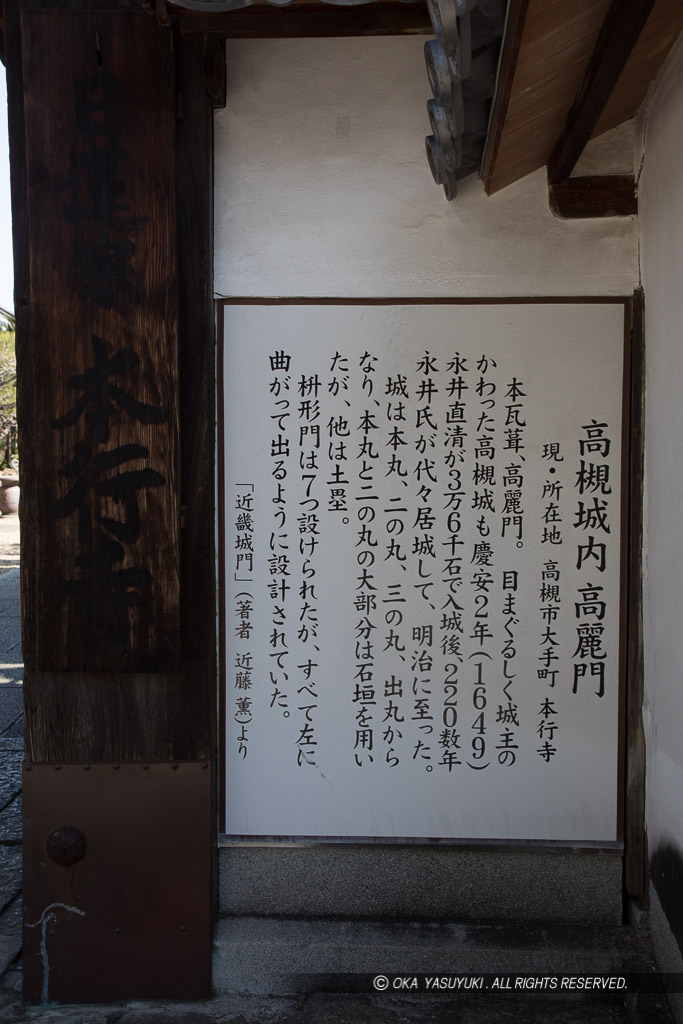 高槻城内 高麗門
現・所在地 高槻市大手町 本行寺
本瓦葺、高麗門。 目まぐるしく城主の
かわった高槻城も慶安2年(1649)
永井直清が3万6千石で入城後220数年
永井氏が代々居城して、明治に至った。
城は本丸、二の丸、三の丸、出丸から
なり、本丸と二の丸の大部分は石垣を用い
たが、他は土塁。
枡形門は7つ設けられたが、すべて左に
曲がって出るように設計されていた。
「近畿城門」(著者 近藤 薫)より
日蓮宗 本行寺
© OKA YASUYUKI. ALL RIGHTS RESERVED.